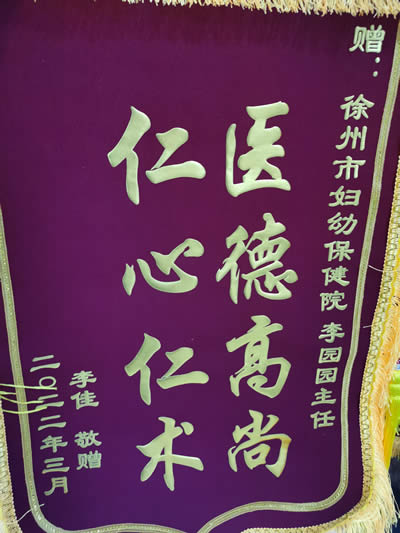 赠：徐州市妇幼保健院 李园园主任
医德高尚
仁心仁术
李佳 敬赠
二〇二二年三月